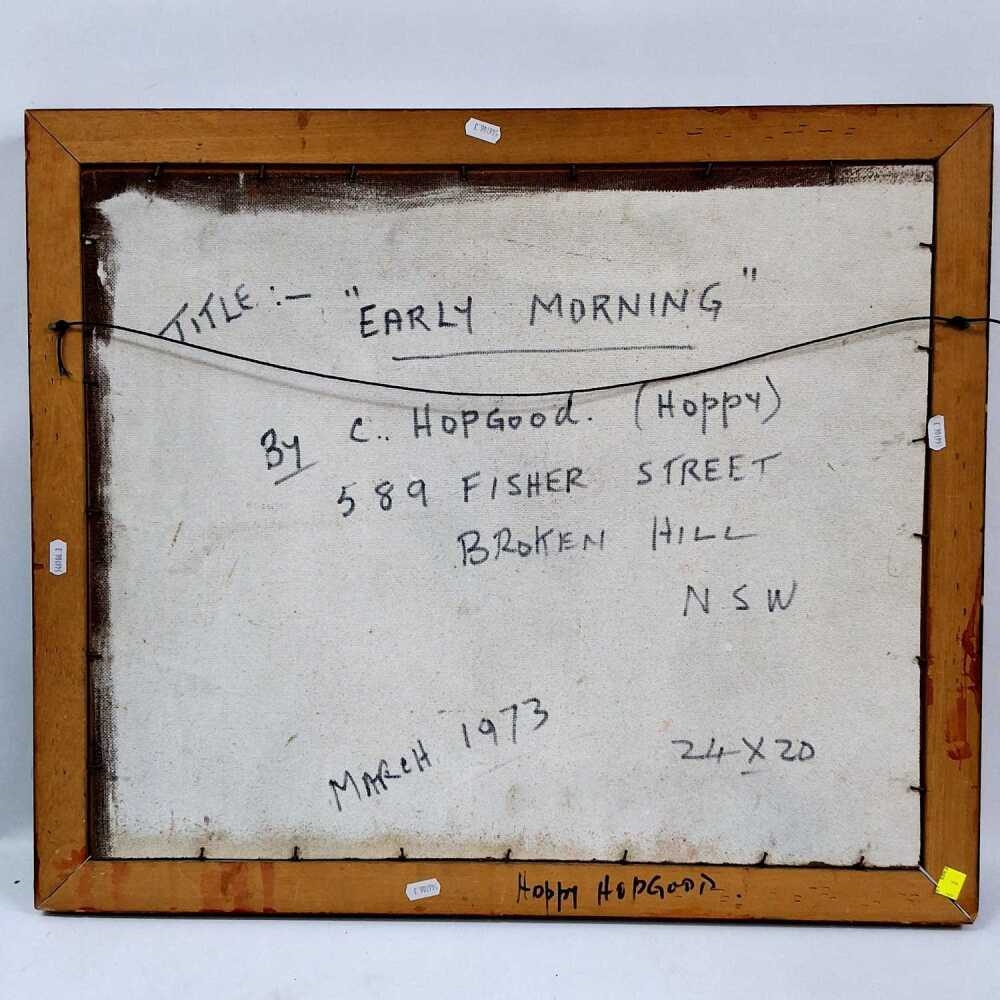 TITLE :- "EARLY MORNING"
By C. HOPGOOD. (HOPPY)
589 FISHER STREET
BROKEN HILL
NSW
MARCH 1973
24 X 20
HOPPY HOPGOOD.